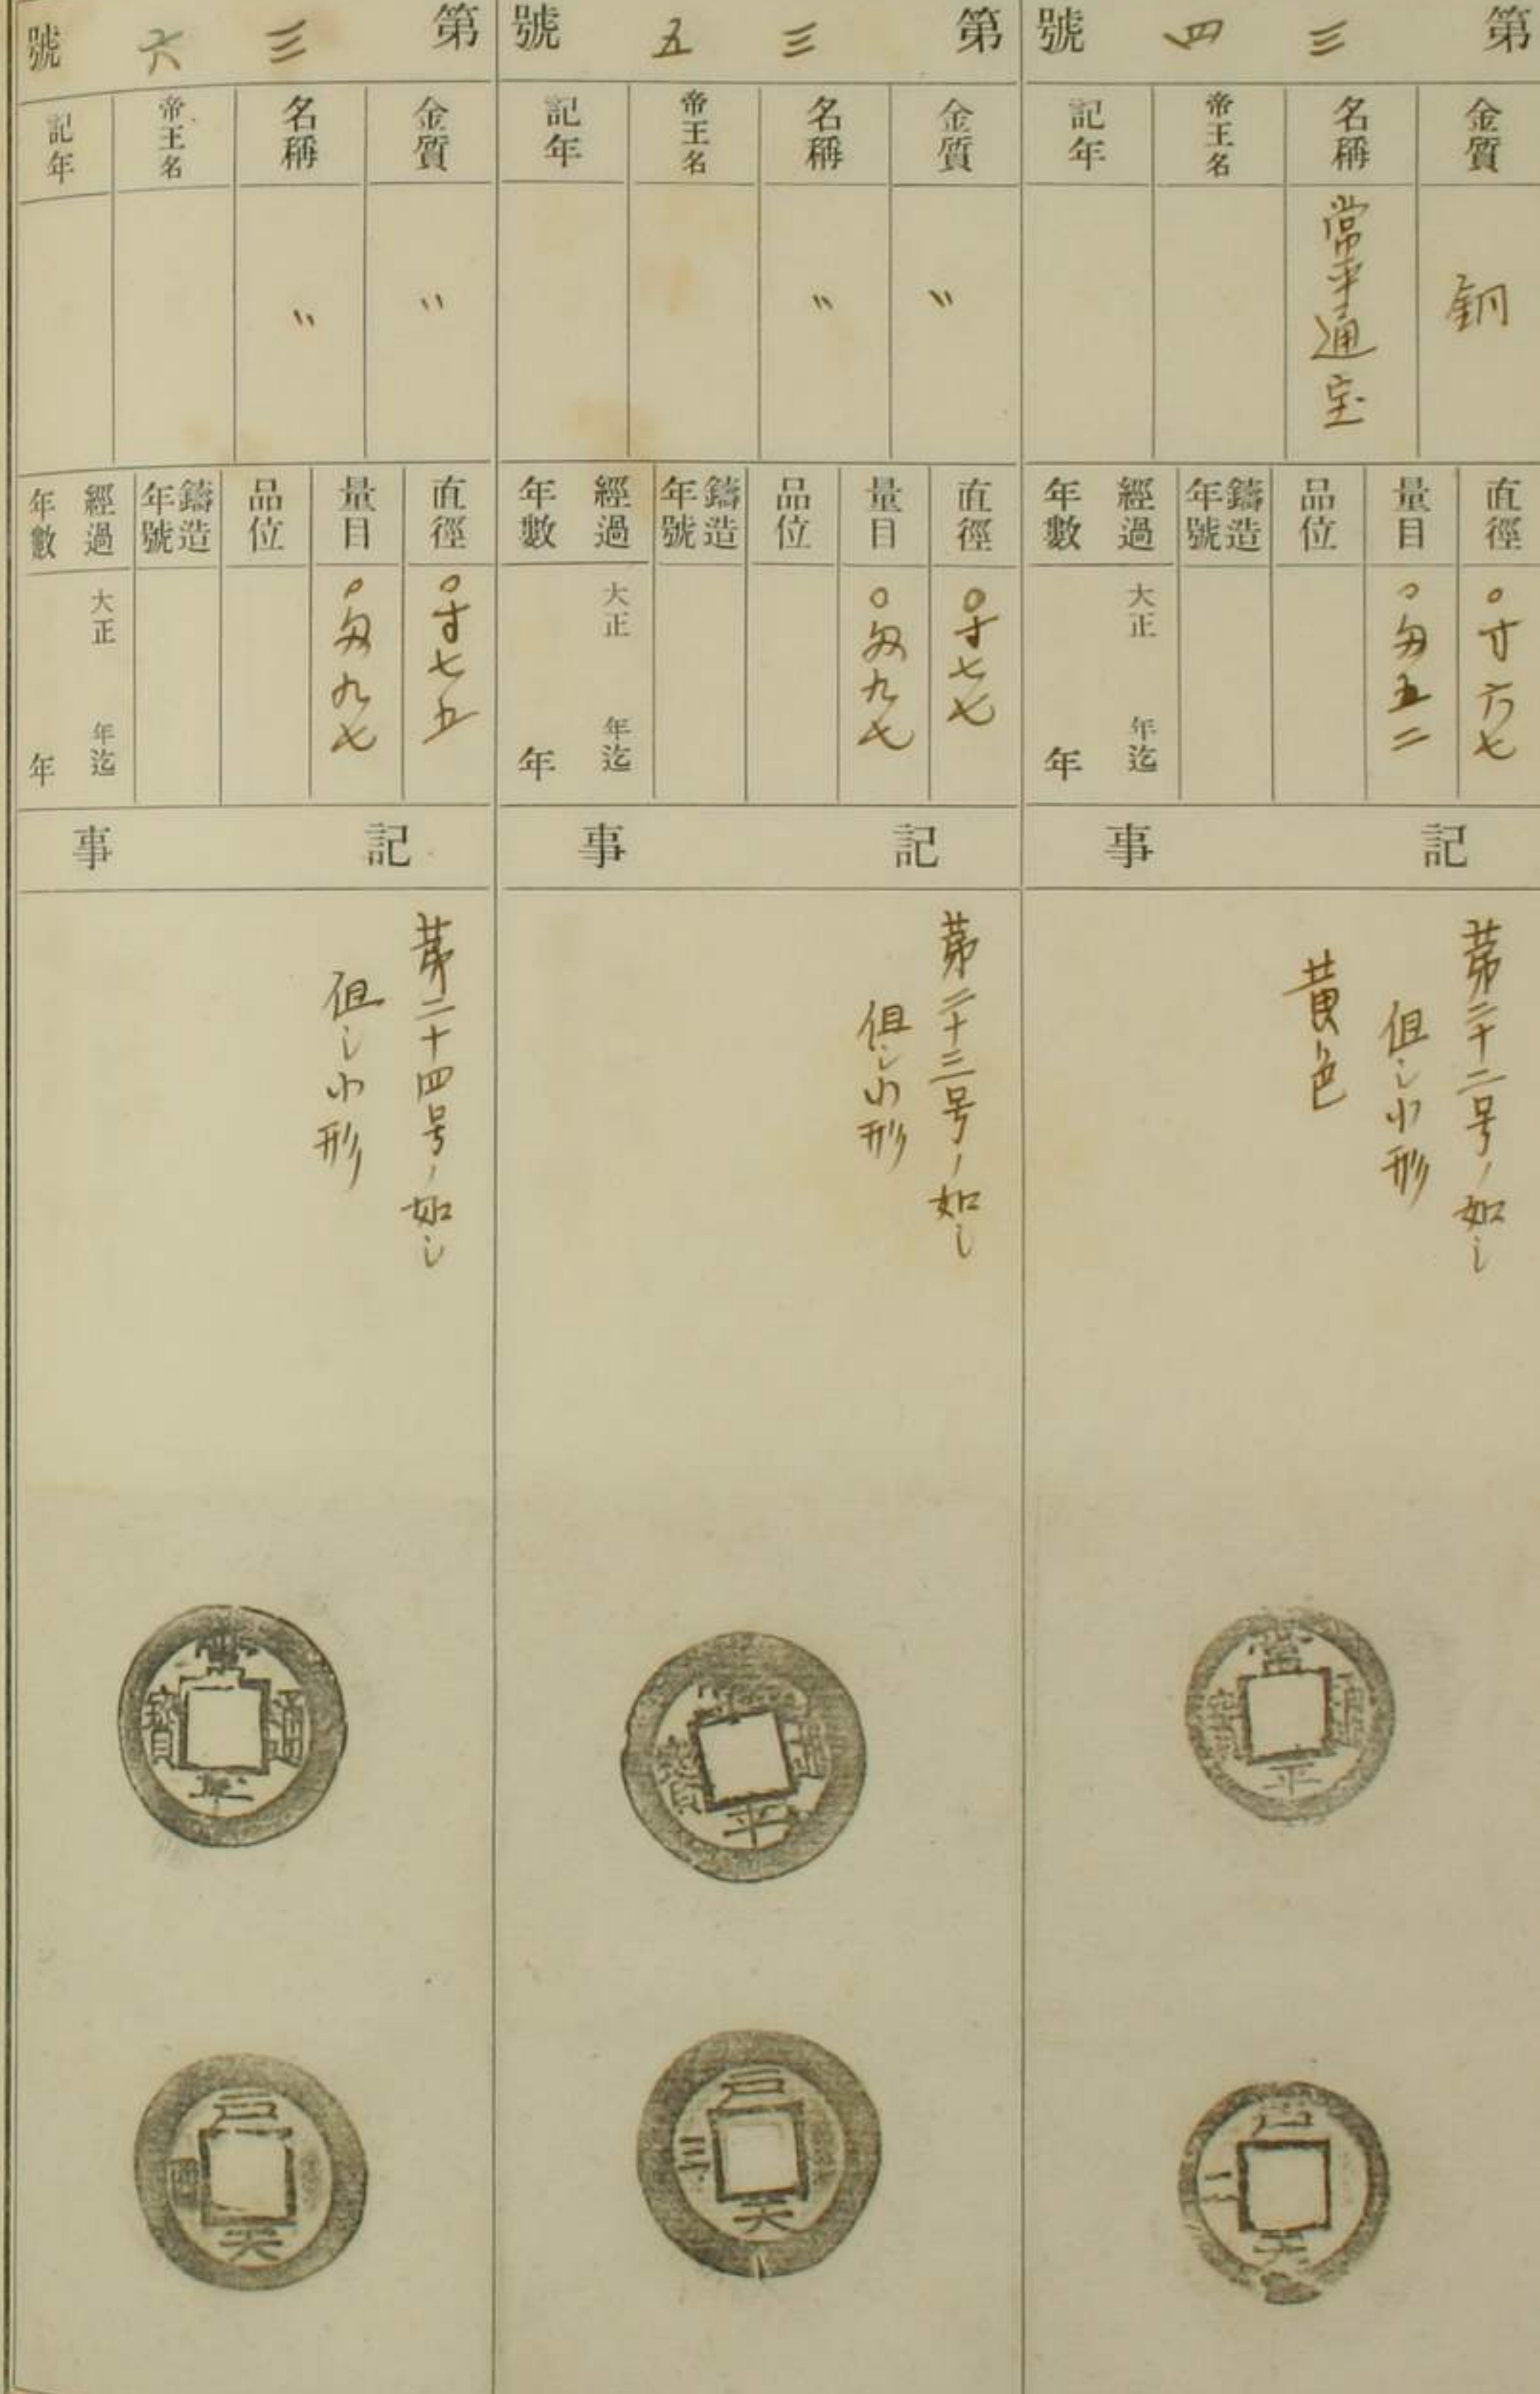 第三四號
金質
銅
名稱
常平通宝
帝王名
記年
直徑
〇寸六七
量目
〇匁五二
品位
鑄造年號
經過年數
大正 年迄
年
記事
第二十二号ノ如シ
但シ小形
黄色
常平通寶
戶
二
天
第三五號
金質
〃
名稱
〃
帝王名
記年
直徑
〇寸七七
量目
〇匁九七
品位
鑄造年號
經過年數
大正 年迄
年
記事
第二十三号ノ如シ
但シ小形
常平通寶
戶
三
天
第三六號
金質
〃
名稱
〃
帝王名
記年
直徑
〇寸七五
量目
〇匁九七
品位
鑄造年號
經過年數
大正 年迄
年
記事
第二十四号ノ如シ
但シ小形
常平通寶
戶
四
天